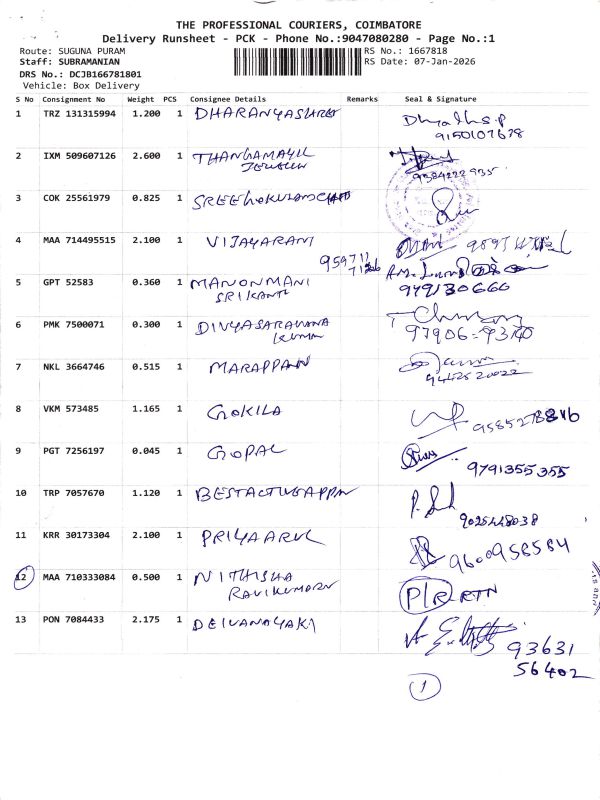 THE PROFESSIONAL COURIERS, COIMBATORE
Delivery Runsheet - PCK - Phone No.:9047080280 - Page No.:1
Route: SUGUNA PURAM RS No.: 1667818
Staff: SUBRAMANIAN RS Date: 07-Jan-2026
DRS No.: DCJB166781801
Vehicle: Box Delivery
S No Consignment No Weight PCS Consignee Details Remarks Seal & Signature
1 TRZ 131315994 1.200 1
9150107678
2 IXM 509607126 2.600 1 THANGAMAYIL
JEWELLERY
9384222935
3 COK 25561979 0.825 1
4 MAA 714495515 2.100 1 VIJAYARANI
5 GPT 52583 0.360 1 MANONMANI
SRIKANTH
6 PMK 7500071 0.300 1 DIVYASARAVANA
KUMAR
7 NKL 3664746 0.515 1 MARAPPAN
9442520022
8 VKM 573485 1.165 1 GOKILA
9 PGT 7256197 0.045 1 GOPAL
9791355355
10 TRP 7057670 1.120 1
9025448038
11 KRR 30173304 2.100 1 PRIYAARUL
9600958584
12 MAA 710333084 0.500 1 NITHISHA
RAVIKUMAR
P/R RTN
13 PON 7084433 2.175 1 DEIVANAYAKI
93631
56402
1